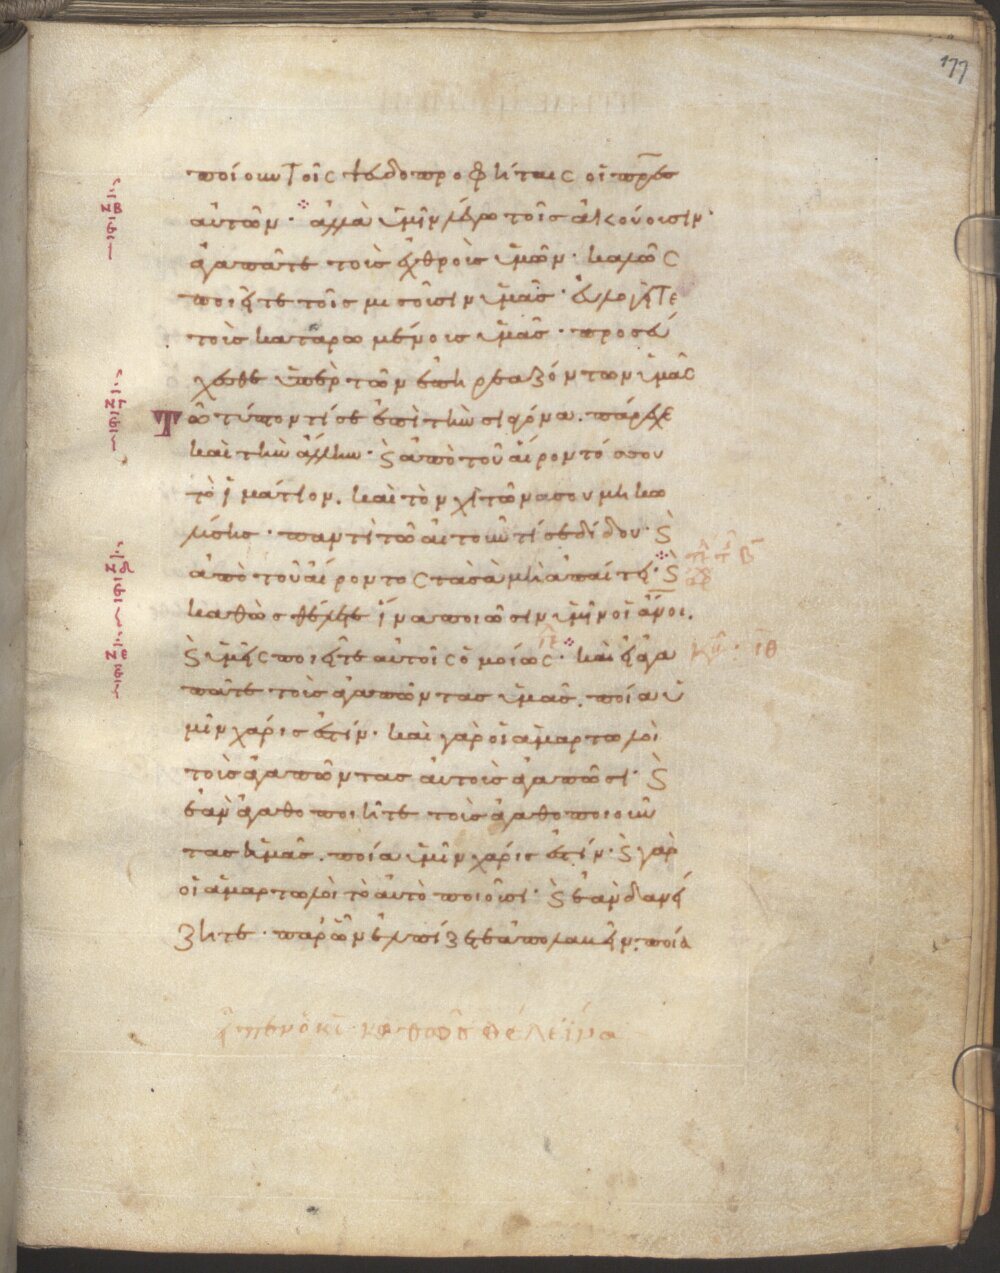 177
ποίουν τοῖς ψευδοπροφήταις οἱ πρ̅ες
αὐτῶν · ἀλλὰ ὑμῖν λέγω τοῖς ἀκούουσιν ·
ἀγαπᾶτε τοὺς ἐχθροὺς ὑμῶν · καλῶς
ποιεῖτε τοῖς μισοῦσιν ὑμᾶς · εὐλογεῖτε
τοὺς καταρωμένους ὑμᾶς · προσεύ
χεσθε ὑπὲρ τῶν ἐπηρεαζόντων ὑμᾶς
Τῶ τύπτοντί σε ἐπὶ τὴν σιαγόνα . πάρεχε
καὶ τὴν ἄλλην · ϗ ἀπὸ τοῦ αἴροντός σου
τὸ ἱμάτιον . καὶ τὸν χιτῶνα σου μὴ κω
λύσης · παντὶ τῶ αἰτοῦντί σε δίδου · ϗ
ἀπὸ τοῦ αἴροντος τὰ σὰ μὴ ἀπαίτει · ϗ
καθὼς θέλετε ἵνα ποιῶσιν ὑμῖν οἱ ἄν̅οι .
ϗ ὑμεῖς ποιεῖτε αὐτοῖς ὁμοίως · καὶ εἰ ἀγα
πᾶτε τοὺς ἀγαπῶντας ὑμᾶς . ποία ὑ
μῖν χάρις ἐστίν · καὶ γὰρ οἱ ἁμαρτωλοὶ
τοὺς ἀγαπῶντας αὐτοὺς ἀγαπῶσι · ϗ
ἐὰν ἀγαθοποιῆτε τοὺς ἀγαθοποιοῦν
τας ὑμᾶς . ποία ὑμῖν χάρις ἐστίν · ϗ γὰρ
οἱ ἁμαρτωλοὶ τὸ αὐτὸ ποιοῦσι · ϗ ἐὰν δανεί
ζητε · παρ' ὧν ἐλπίζετε ἀπολαβεῖν . ποία